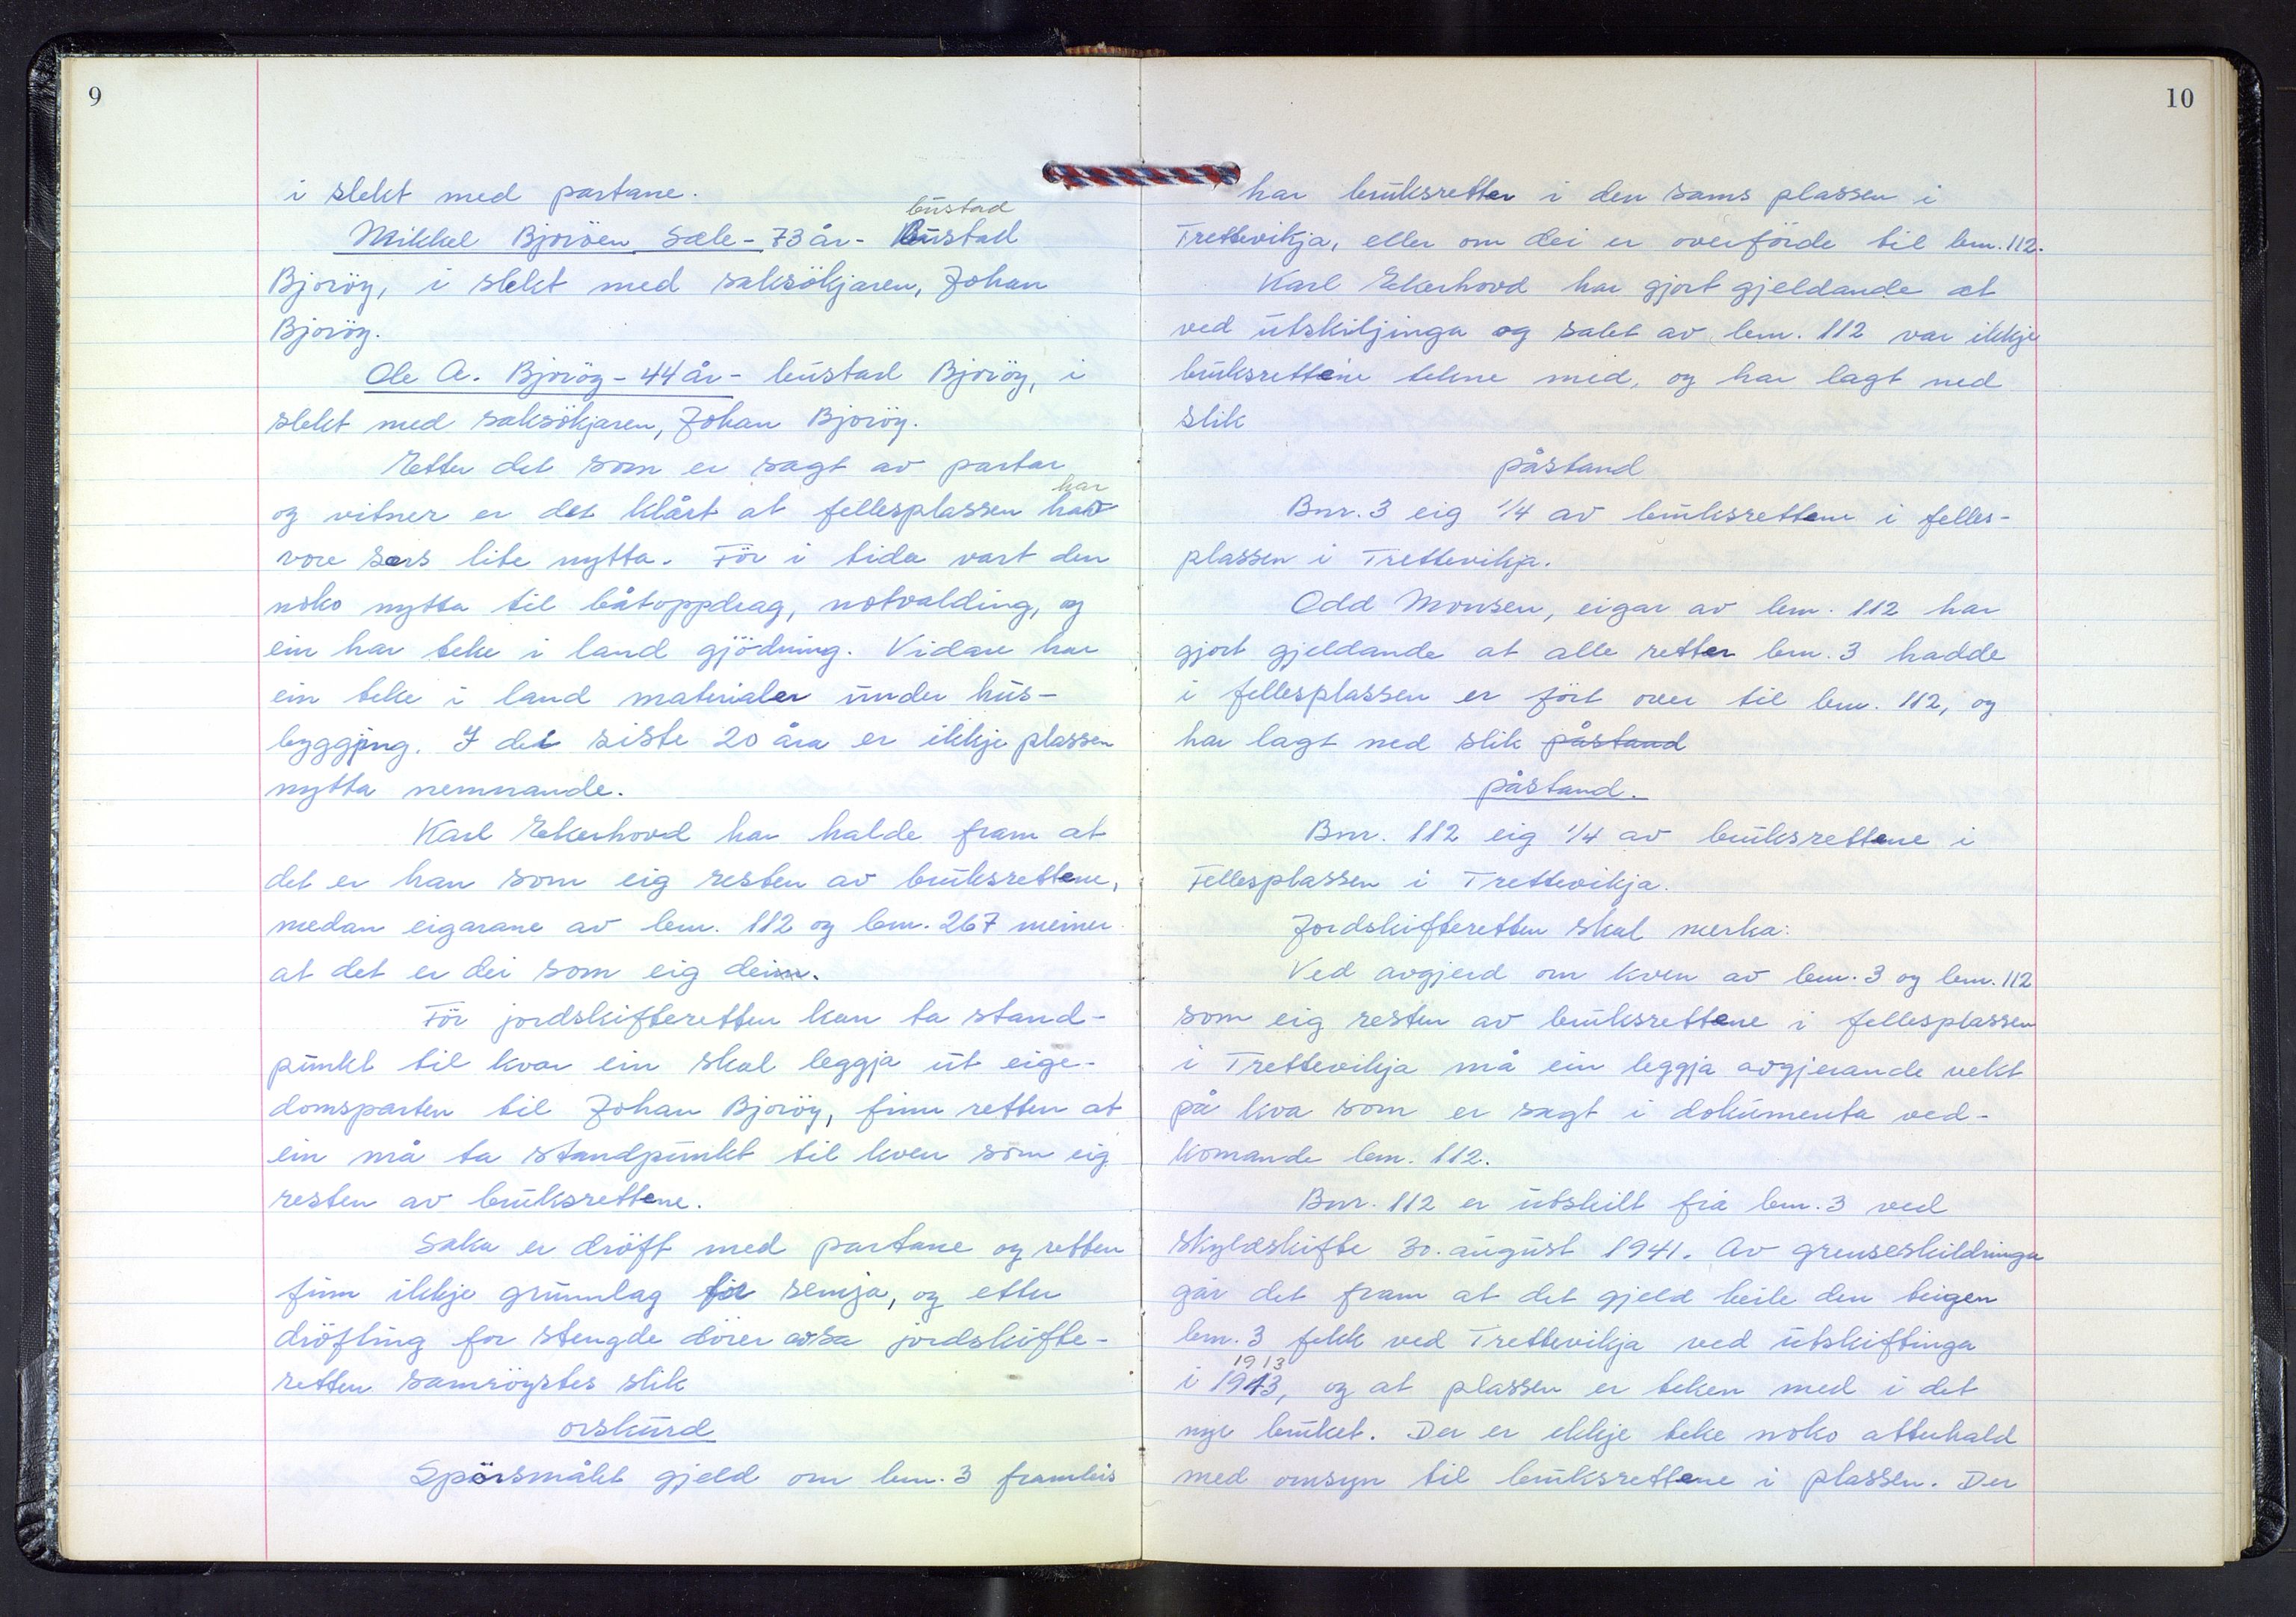 9
i slekt med partane.
bustad
Mikkel Bjoröen Sæle - 73 år - Bustad
Bjoröy, i slekt med saksökjaren, Johan
Bjoröy.
Ole A. Bjoröy - 44 år - bustad Bjoröy, i
slekt med saksökjaren, Johan Bjoröy.
Etter det som er sagt av partar
har
og vitner er det klårt at fellesplassen har
vore særs lite nytta. För i tida vart den
noko nytta til båtoppdrag, notvalding, og
ein har teke i land gjödning. Vidare har
ein teke i land materialer under hus-
byggjing. I dei siste 20 åra er ikkje plassen
nytta nemnande.
Karl Ekerhovd har halde fram at
det er han som eig resten av bruksrettene,
medan eigarane av bnr. 112 og bnr. 267 meiner
at det er dei som eig deim.
För jordskifteretten kan ta stand-
punkt til kvar ein skal leggja ut eige-
domsparten til Johan Bjoröy, finn retten at
ein må ta standpunkt til kven som eig
resten av bruksrettene.
Saka er dröft med partane og retten
finn ikkje grunnlag for semja, og etter
dröfting for stengde dörer avsa jordskifte-
retten samröystes slik
orskurd
Spörsmålet gjeld om bnr. 3 framleis
10
har bruksretter i den sams plassen i
Trettevikja, eller om dei er overförde til bnr. 112.
Karl Ekerhovd har gjort gjeldande at
ved utskiljinga og salet av bnr. 112 var ikkje
bruksrettene tekne med, og har lagt ned
slik
påstand
Bnr. 3 eig 1/4 av bruksrettene i felles-
plassen i Trettevikja.
Odd Monsen, eigar av bnr. 112 har
gjort gjeldande at alle retter bnr. 3 hadde
i fellesplassen er fört over til bnr. 112, og
har lagt ned slik påstand
påstand.
Bnr. 112 eig 1/4 av bruksrettene i
Fellesplassen i Trettevikja.
Jordskifteretten skal merka:
Ved avgjerd om kven av bnr. 3 og bnr. 112
som eig resten av bruksrettene i fellesplassen
i Trettevikja må ein leggja avgjerande vekt
på kva som er sagt i dokumenta ved-
komande bnr. 112.
Bnr. 112 er utskilt frå bnr. 3 ved
skyldskifte 30. august 1941. Av grenseskildringa
går det fram at det gjeld heile den teigen
bnr. 3 fekk ved Trettevikja ved utskiftinga
1913
i 1913, og at plassen er teken med i det
nye bruket. Der er ikkje teke noko atterhald
med omsyn til bruksrettene i plassen. Der